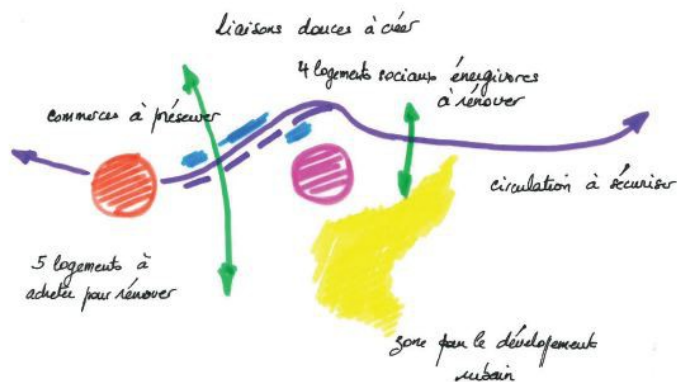 liaisons douces à créer
4 logements sociaux énergivores
à rénover
commerces à préserver
circulation à sécuriser
5 logements à
acheter pour rénover
zone pour le développements
urbain